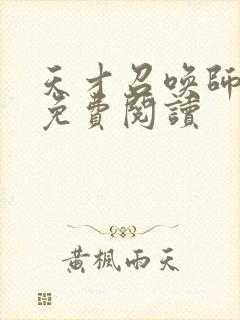 天才召唤師
免費閱讀
黃楓雨天